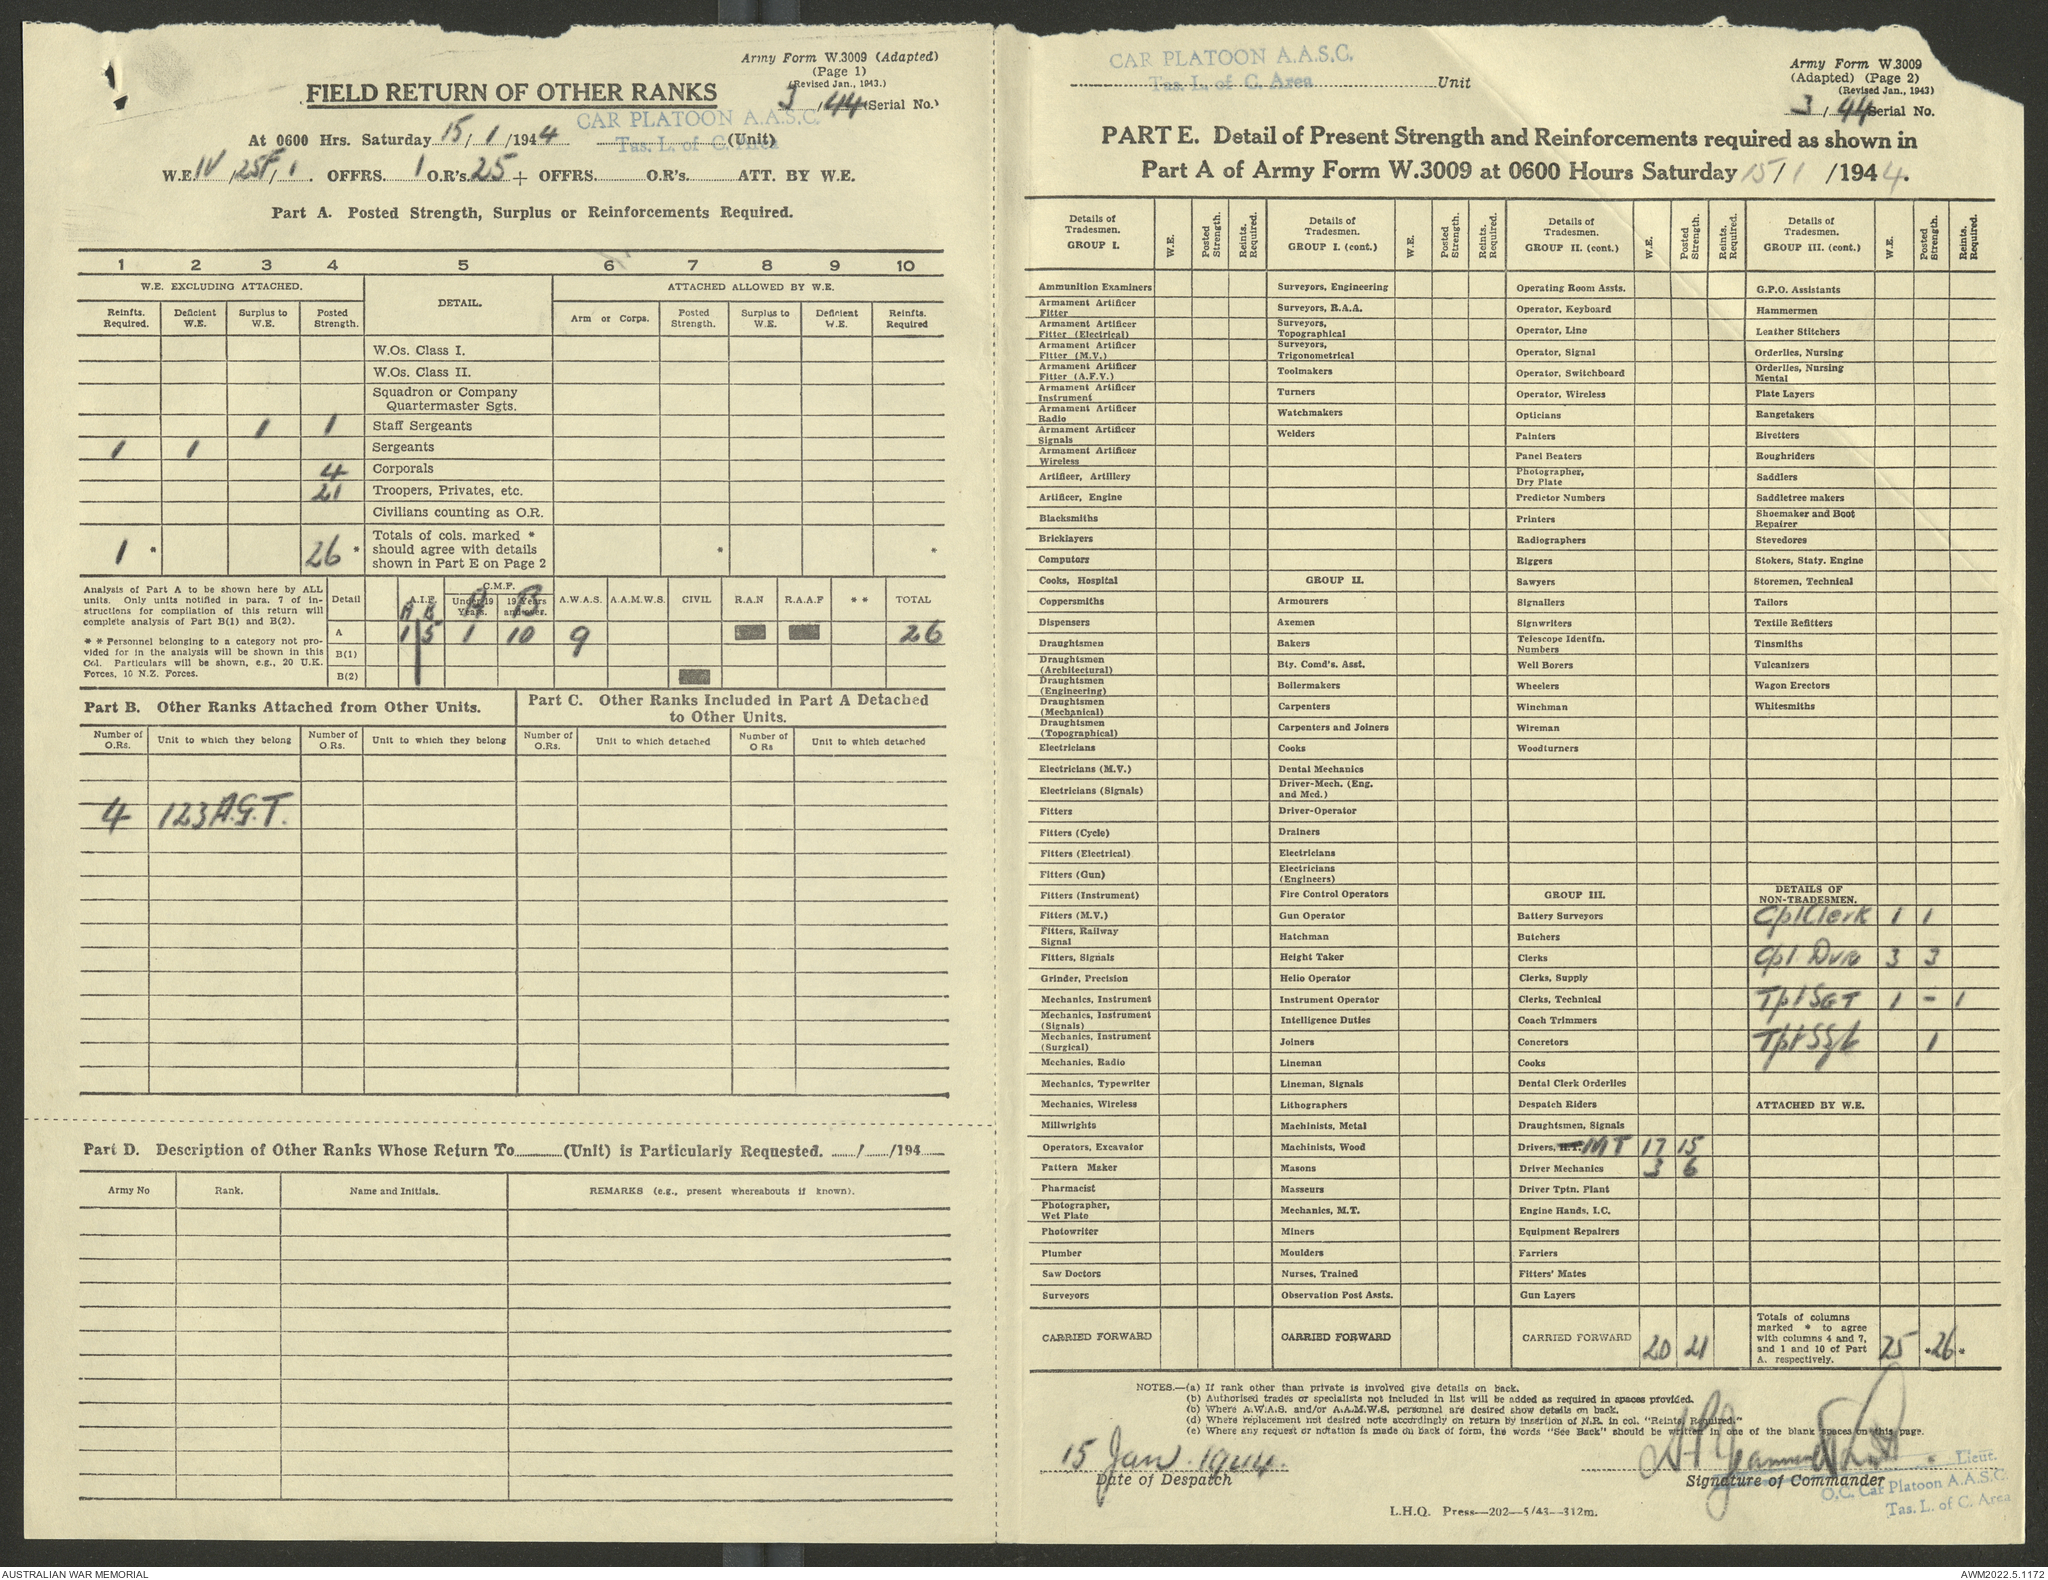 Army Form W.3009 (Adapted)
(Page 1)
(Revised Jan., 1943.)
FIELD RETURN OF OTHER RANKS
3/44 (Serial No.)
CAR PLATOON A.A.S.C.
At 0600 Hrs. Saturday 15/1/1944 (Unit)
Tas. L. of C. Area
W.E. IV/25F/1. OFFRS. 1 O.R's. 25 + OFFRS. O.R's. ATT. BY W.E.
Part A. Posted Strength, Surplus or Reinforcements Required.
1 2 3 4 5 6 7 8 9 10
W.E. EXCLUDING ATTACHED. DETAIL. ATTACHED ALLOWED BY W.E.
Reinfts. Required. Deficient W.E. Surplus to W.E. Posted Strength. Arm or Corps. Posted Strength. Surplus to W.E. Deficient W.E. Reinfts. Required
W.Os. Class I.
W.Os. Class II.
Squadron or Company
Quartermaster Sgts.
1 1 Staff Sergeants
1 1 Sergeants
4 Corporals
21 Troopers, Privates, etc.
Civilians counting as O.R.
1 * 26 * Totals of cols. marked * should agree with details shown in Part E on Page 2 * *
Analysis of Part A to be shown here by ALL
units. Only units notified in para. 7 of in-
structions for compilation of this return will
complete analysis of Part B(1) and B(2).
** Personnel belonging to a category not pro-
vided for in the analysis will be shown in this
Col. Particulars will be shown, e.g., 20 U.K.
Forces, 10 N.Z. Forces.
Detail A.I.F. C.M.F. Under 19 Years. 19 Years and over. A.W.A.S. A.A.M.W.S. CIVIL R.A.N R.A.A.F ** TOTAL
A B A B
A 1 5 1 10 9 26
B(1)
B(2)
Part B. Other Ranks Attached from Other Units.
Part C. Other Ranks Included in Part A Detached
to Other Units.
Number of O.Rs. Unit to which they belong Number of O.Rs. Unit to which they belong Number of O.Rs. Unit to which detached Number of O Rs Unit to which detached
4 123 A.G.T.
Part D. Description of Other Ranks Whose Return To (Unit) is Particularly Requested. / /194
Army No Rank. Name and Initials. REMARKS (e.g., present whereabouts if known).
CAR PLATOON A.A.S.C.
Tas. L. of C. Area Unit
Army Form W.3009
(Adapted) (Page 2)
(Revised Jan., 1943)
3/44 Serial No.
PART E. Detail of Present Strength and Reinforcements required as shown in
Part A of Army Form W.3009 at 0600 Hours Saturday 15/1/1944.
Details of Tradesmen. GROUP I. W.E. Posted Strength. Reints. Required.
Ammunition Examiners
Armament Artificer Fitter
Armament Artificer Fitter (Electrical)
Armament Artificer Fitter (M.V.)
Armament Artificer Fitter (A.F.V.)
Armament Artificer Instrument
Armament Artificer Radio
Armament Artificer Signals
Armament Artificer Wireless
Artificer, Artillery
Artificer, Engine
Blacksmiths
Bricklayers
Computors
Cooks, Hospital
Coppersmiths
Dispensers
Draughtsmen
Draughtsmen (Architectural)
Draughtsmen (Engineering)
Draughtsmen (Mechanical)
Draughtsmen (Topographical)
Electricians
Electricians (M.V.)
Electricians (Signals)
Fitters
Fitters (Cycle)
Fitters (Electrical)
Fitters (Gun)
Fitters (Instrument)
Fitters (M.V.)
Fitters, Railway Signal
Fitters, Signals
Grinder, Precision
Mechanics, Instrument
Mechanics, Instrument (Signals)
Mechanics, Instrument (Surgical)
Mechanics, Radio
Mechanics, Typewriter
Mechanics, Wireless
Millwrights
Operators, Excavator
Pattern Maker
Pharmacist
Photographer, Wet Plate
Photowriter
Plumber
Saw Doctors
Surveyors
CARRIED FORWARD
Details of Tradesmen. GROUP I. (cont.) W.E. Posted Strength. Reints. Required.
Surveyors, Engineering
Surveyors, R.A.A.
Surveyors, Topographical
Surveyors, Trigonometrical
Toolmakers
Turners
Watchmakers
Welders
GROUP II.
Armourers
Axemen
Bakers
Bty. Comd's. Asst.
Boilermakers
Carpenters
Carpenters and Joiners
Cooks
Dental Mechanics
Driver-Mech. (Eng. and Med.)
Driver-Operator
Drainers
Electricians
Electricians (Engineers)
Fire Control Operators
Gun Operator
Hatchman
Height Taker
Helio Operator
Instrument Operator
Intelligence Duties
Joiners
Lineman
Lineman, Signals
Lithographers
Machinists, Metal
Machinists, Wood
Masons
Masseurs
Mechanics, M.T.
Miners
Moulders
Nurses, Trained
Observation Post Assts.
CARRIED FORWARD
Details of Tradesmen. GROUP II. (cont.) W.E. Posted Strength. Reints. Required.
Operating Room Assts.
Operator, Keyboard
Operator, Line
Operator, Signal
Operator, Switchboard
Operator, Wireless
Opticians
Painters
Panel Beaters
Photographer, Dry Plate
Predictor Numbers
Printers
Radiographers
Riggers
Sawyers
Signallers
Signwriters
Telescope Identfn. Numbers
Well Borers
Wheelers
Winchman
Wireman
Woodturners
GROUP III.
Battery Surveyors
Butchers
Clerks
Clerks, Supply
Clerks, Technical
Coach Trimmers
Concretors
Cooks
Dental Clerk Orderlies
Despatch Riders
Draughtsmen, Signals
Drivers, H.T. MT 17 15
Driver Mechanics 3 6
Driver Tptn. Plant
Engine Hands, I.C.
Equipment Repairers
Farriers
Fitters' Mates
Gun Layers
CARRIED FORWARD 20 21
Details of Tradesmen. GROUP III. (cont.) W.E. Posted Strength. Reints. Required.
G.P.O. Assistants
Hammermen
Leather Stitchers
Orderlies, Nursing
Orderlies, Nursing Mental
Plate Layers
Rangetakers
Rivetters
Roughriders
Saddlers
Saddletree makers
Shoemaker and Boot Repairer
Stevedores
Stokers, Staty. Engine
Storemen, Technical
Tailors
Textile Refitters
Tinsmiths
Vulcanizers
Wagon Erectors
Whitesmiths
DETAILS OF NON-TRADESMEN.
Cpl Clerk 1 1
Cpl. Dvrs 3 3
Tpt SGT 1 - 1
Tpt SSgt 1
ATTACHED BY W.E.
Totals of columns marked * to agree with columns 4 and 7, and 1 and 10 of Part A. respectively. 25 *26*
NOTES.—(a) If rank other than private is involved give details on back.
(b) Authorised trades or specialists not included in list will be added as required in spaces provided.
(b) Where A.W.A.S. and/or A.A.M.W.S. personnel are desired show details on back.
(d) Where replacement not desired note accordingly on return by insertion of N.R. in col. "Reints. Required."
(e) Where any request or notation is made on back of form, the words "See Back" should be written in one of the blank spaces on this page.
15 Jan. 1944.
Date of Despatch
Signature of Commander
Lieut.
O.C. Car Platoon A.A.S.C.
Tas. L. of C. Area
L.H.Q. Press—202—5/43—312m.
AUSTRALIAN WAR MEMORIAL
AWM2022.5.1172